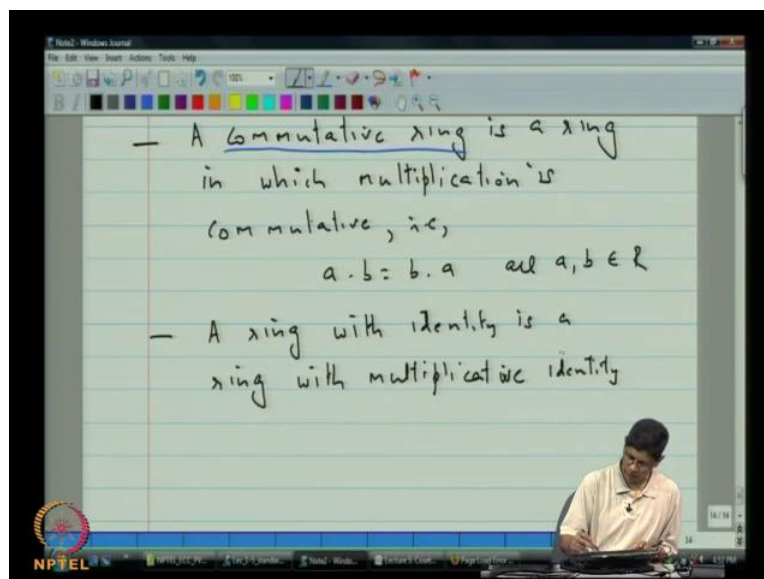 Note2 - Windows Journal
File Edit View Insert Actions Tools Help
100%
B I
— A commutative ring is a ring
in which multiplication is
commutative, i.e,
a . b = b . a all a, b ∈ R
— A ring with identity is a
ring with multiplicative identity
14/14
14
NPTEL
Note2 - Windo...
Page Load Error ...
4:52 PM